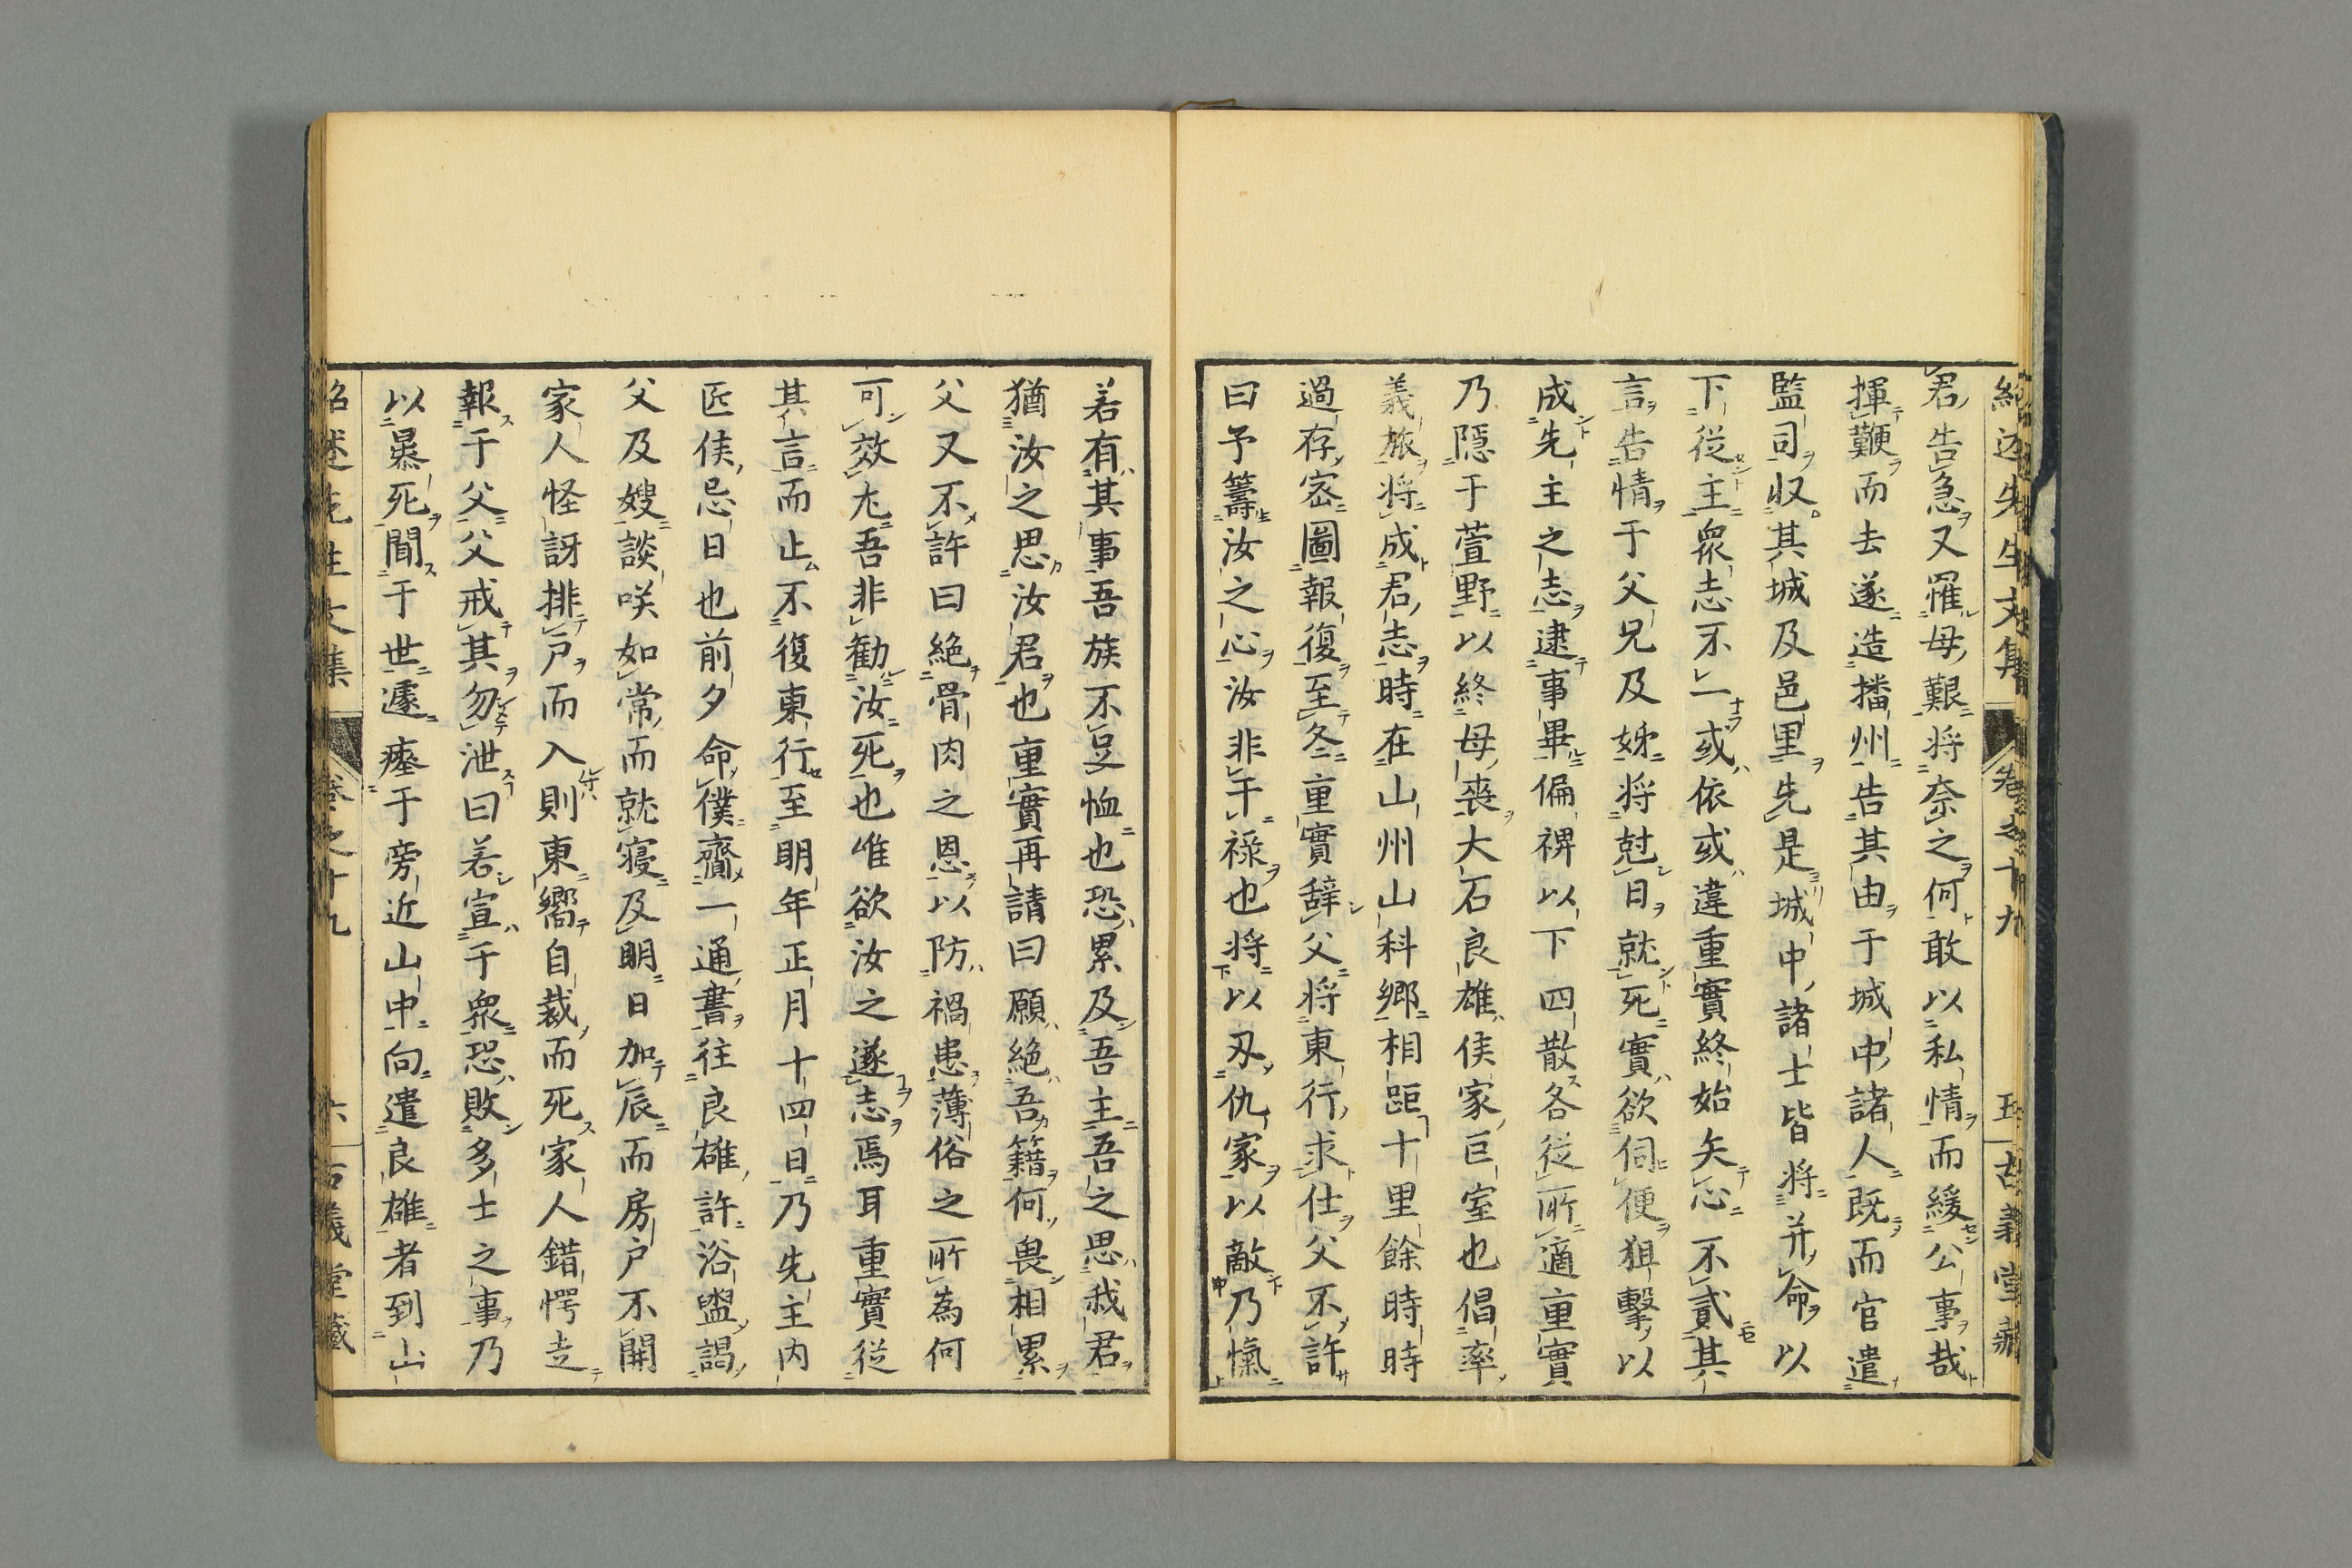 紹述先生文集 卷之十九 五 古義堂藏
君告急又罹母艱將奈之何敢以私情而緩公事哉
揮鞭而去遂造播州告其由于城中諸人既而官遣
監司収其城及邑里先是城中諸士皆將并命以
下從主衆志不一或依或違重實終始矢心不貳其
言告情于父兄及姊將尅日就死實欲伺便狙擊以
成先主之志逮事畢偏裨以下四散各從所適重實
乃隱于萱野以終母喪大石良雄侯家巨室也倡率
義旅將成君志時在山州山科郷相距十里餘時時
過存密圖報復至冬重實辞父將東行求仕父不許
曰予籌汝之心汝非干祿也將以刃仇家以敵乃愾
若有其事吾族不足恤也恐累及吾主吾之思我君
猶汝之思汝君也重實再請曰願絶吾籍何畏相累
父又不許曰絶骨肉之恩以防禍患薄俗之所為何
可效尤吾非勸汝死也唯欲汝之遂志焉耳重實從
其言而止不復東行至明年正月十四日乃先主内
匠侯忌日也前夕命僕齎一通書往良雄許浴盥謁
父及嫂談咲如常而就寢及明日加辰而房戸不開
家人怪訝排戸而入則東嚮自裁而死家人錯愕走
報于父父戒其勿泄曰若宣于衆恐敗多士之事乃
以暴死聞于世遽瘞于旁近山中向遣良雄者到山
紹述先生文集 卷之十九 六 古義堂藏